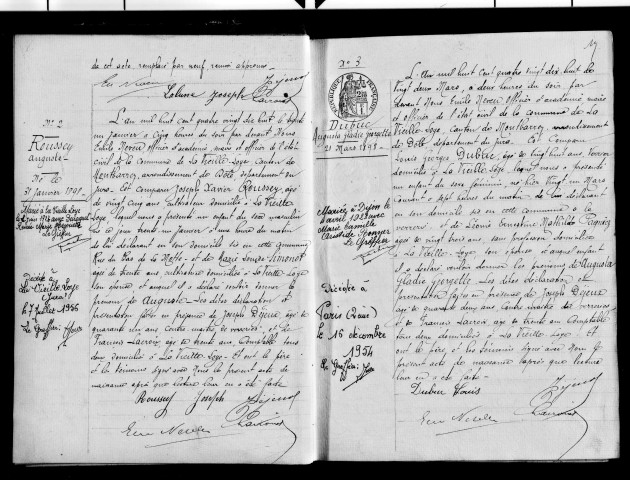 de cet acte, remplacé par neuf, renvoi approuvé.
Em Nerel Lalune Joseph Dejeux
Lacroix
N° 2
Roussey
Auguste
Né le
31 janvier 1898
Marié à la Vieille Loye
Décédé à
La Vieille Loye
(Jura)
le 7 juillet 1966
Le Greffier
L'An mil huit cent quatre vingt dix huit le trente
un janvier à cinq heures du soir par devant Nous
Emile Nereu officier d'académie maire et officier de l'état
civil de la commune de La Vieille Loye Canton de
Montbarrey, arrondissement de Dôle département du
Jura. Est comparu Joseph Xavier Roussey, âgé
de vingt cinq ans cultivateur domicilié à La Vieille
Loye, lequel nous a présenté un enfant du sexe masculin
né ce jour trente un janvier à une heure du matin
de lui déclarant en son domicile sis en cette commune
Rue du Pas de la Motte, et de Marie Louise Simonot
âgée de trente ans cultivatrice domiciliée à La Vieille Loye
son épouse et auquel il a déclaré vouloir donner le
prénom de Auguste. Les dites déclaration et
présentation faites en présence de Joseph Dejeux âgé de
quarante deux ans contre maître de verrerie et de
Francis Lacroix âgé de trente ans Comptable tous
deux domiciliés à La Vieille Loye. Et ont le père et
les témoins signé avec Nous le présent acte de
naissance après que lecture leur en a été faite
Roussey Joseph Dejeux
Em Nerel Lacroix
17
N° 3
RÉPUBLIQUE FRANÇAISE
Dubuc
Augusta gladie georgette
21 Mars 1898
Mariée à Dijon le
avril 1922 avec
Marie Camille
Le Greffier
Décédée à
Paris
le 16 décembre
1954
Le Greffier
L'An mil huit cent quatre vingt dix huit le
vingt deux Mars, à deux heures du soir par
devant Nous Emile Nereu officier d'académie maire
et officier de l'état civil de la commune de La
Vieille Loye, Canton de Montbarrey, arrondissement
de Dôle département du Jura. Est Comparu
Louis Georges Dubuc, âgé de vingt huit ans, Verrier
domicilié à La Vieille Loye, lequel nous a présenté
un enfant du sexe féminin, né hier vingt un Mars
courant à sept heures du matin de lui déclarant
en son domicile sis en cette commune à la
verrerie, et de Léonie Ernestine Mathilde
âgée de vingt trois ans, sans profession domiciliée
à La Vieille Loye son épouse, et auquel enfant
il a déclaré vouloir donner les prénoms de Augusta
Gladie georgette. Les dites déclaration et
présentation faites en présence de Joseph Dejeux
âgé de quarante deux ans contre maître de verrerie
et de Francis Lacroix âgé de trente ans Comptable
tous deux domiciliés à La Vieille Loye. Et
ont le père et les témoins signé avec Nous le
présent acte de naissance après que lecture
leur en a été faite
Dubuc Louis Dejeux
Em Nerel Lacroix